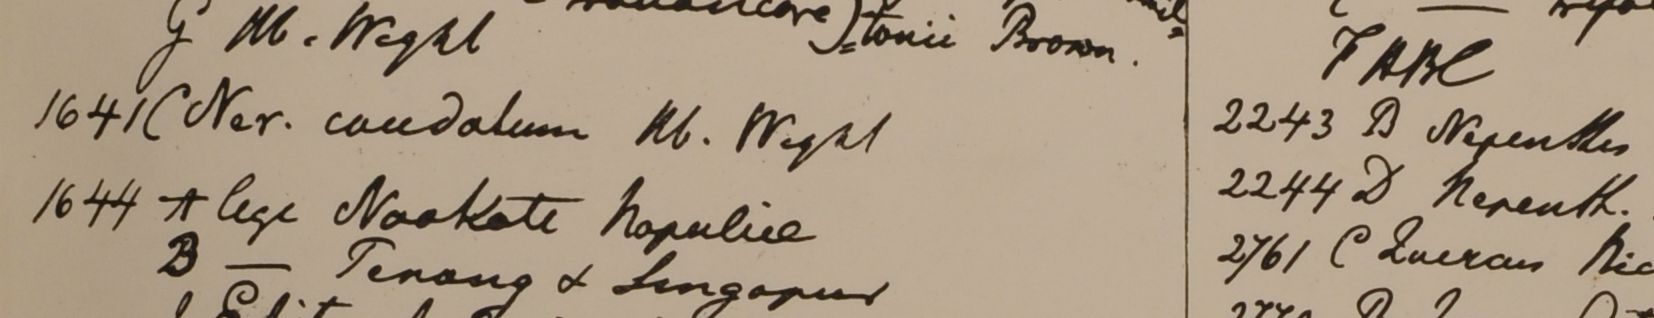 G Hb. Wight
tonii Brown.
1641 C Ner. caudatum Hb. Wight
1644 A lege Noakote Napaliae
B — Penang & Singapur
F HBC
2243 B Nepenthes
2244 D Nepenth.
2761 C Quercus